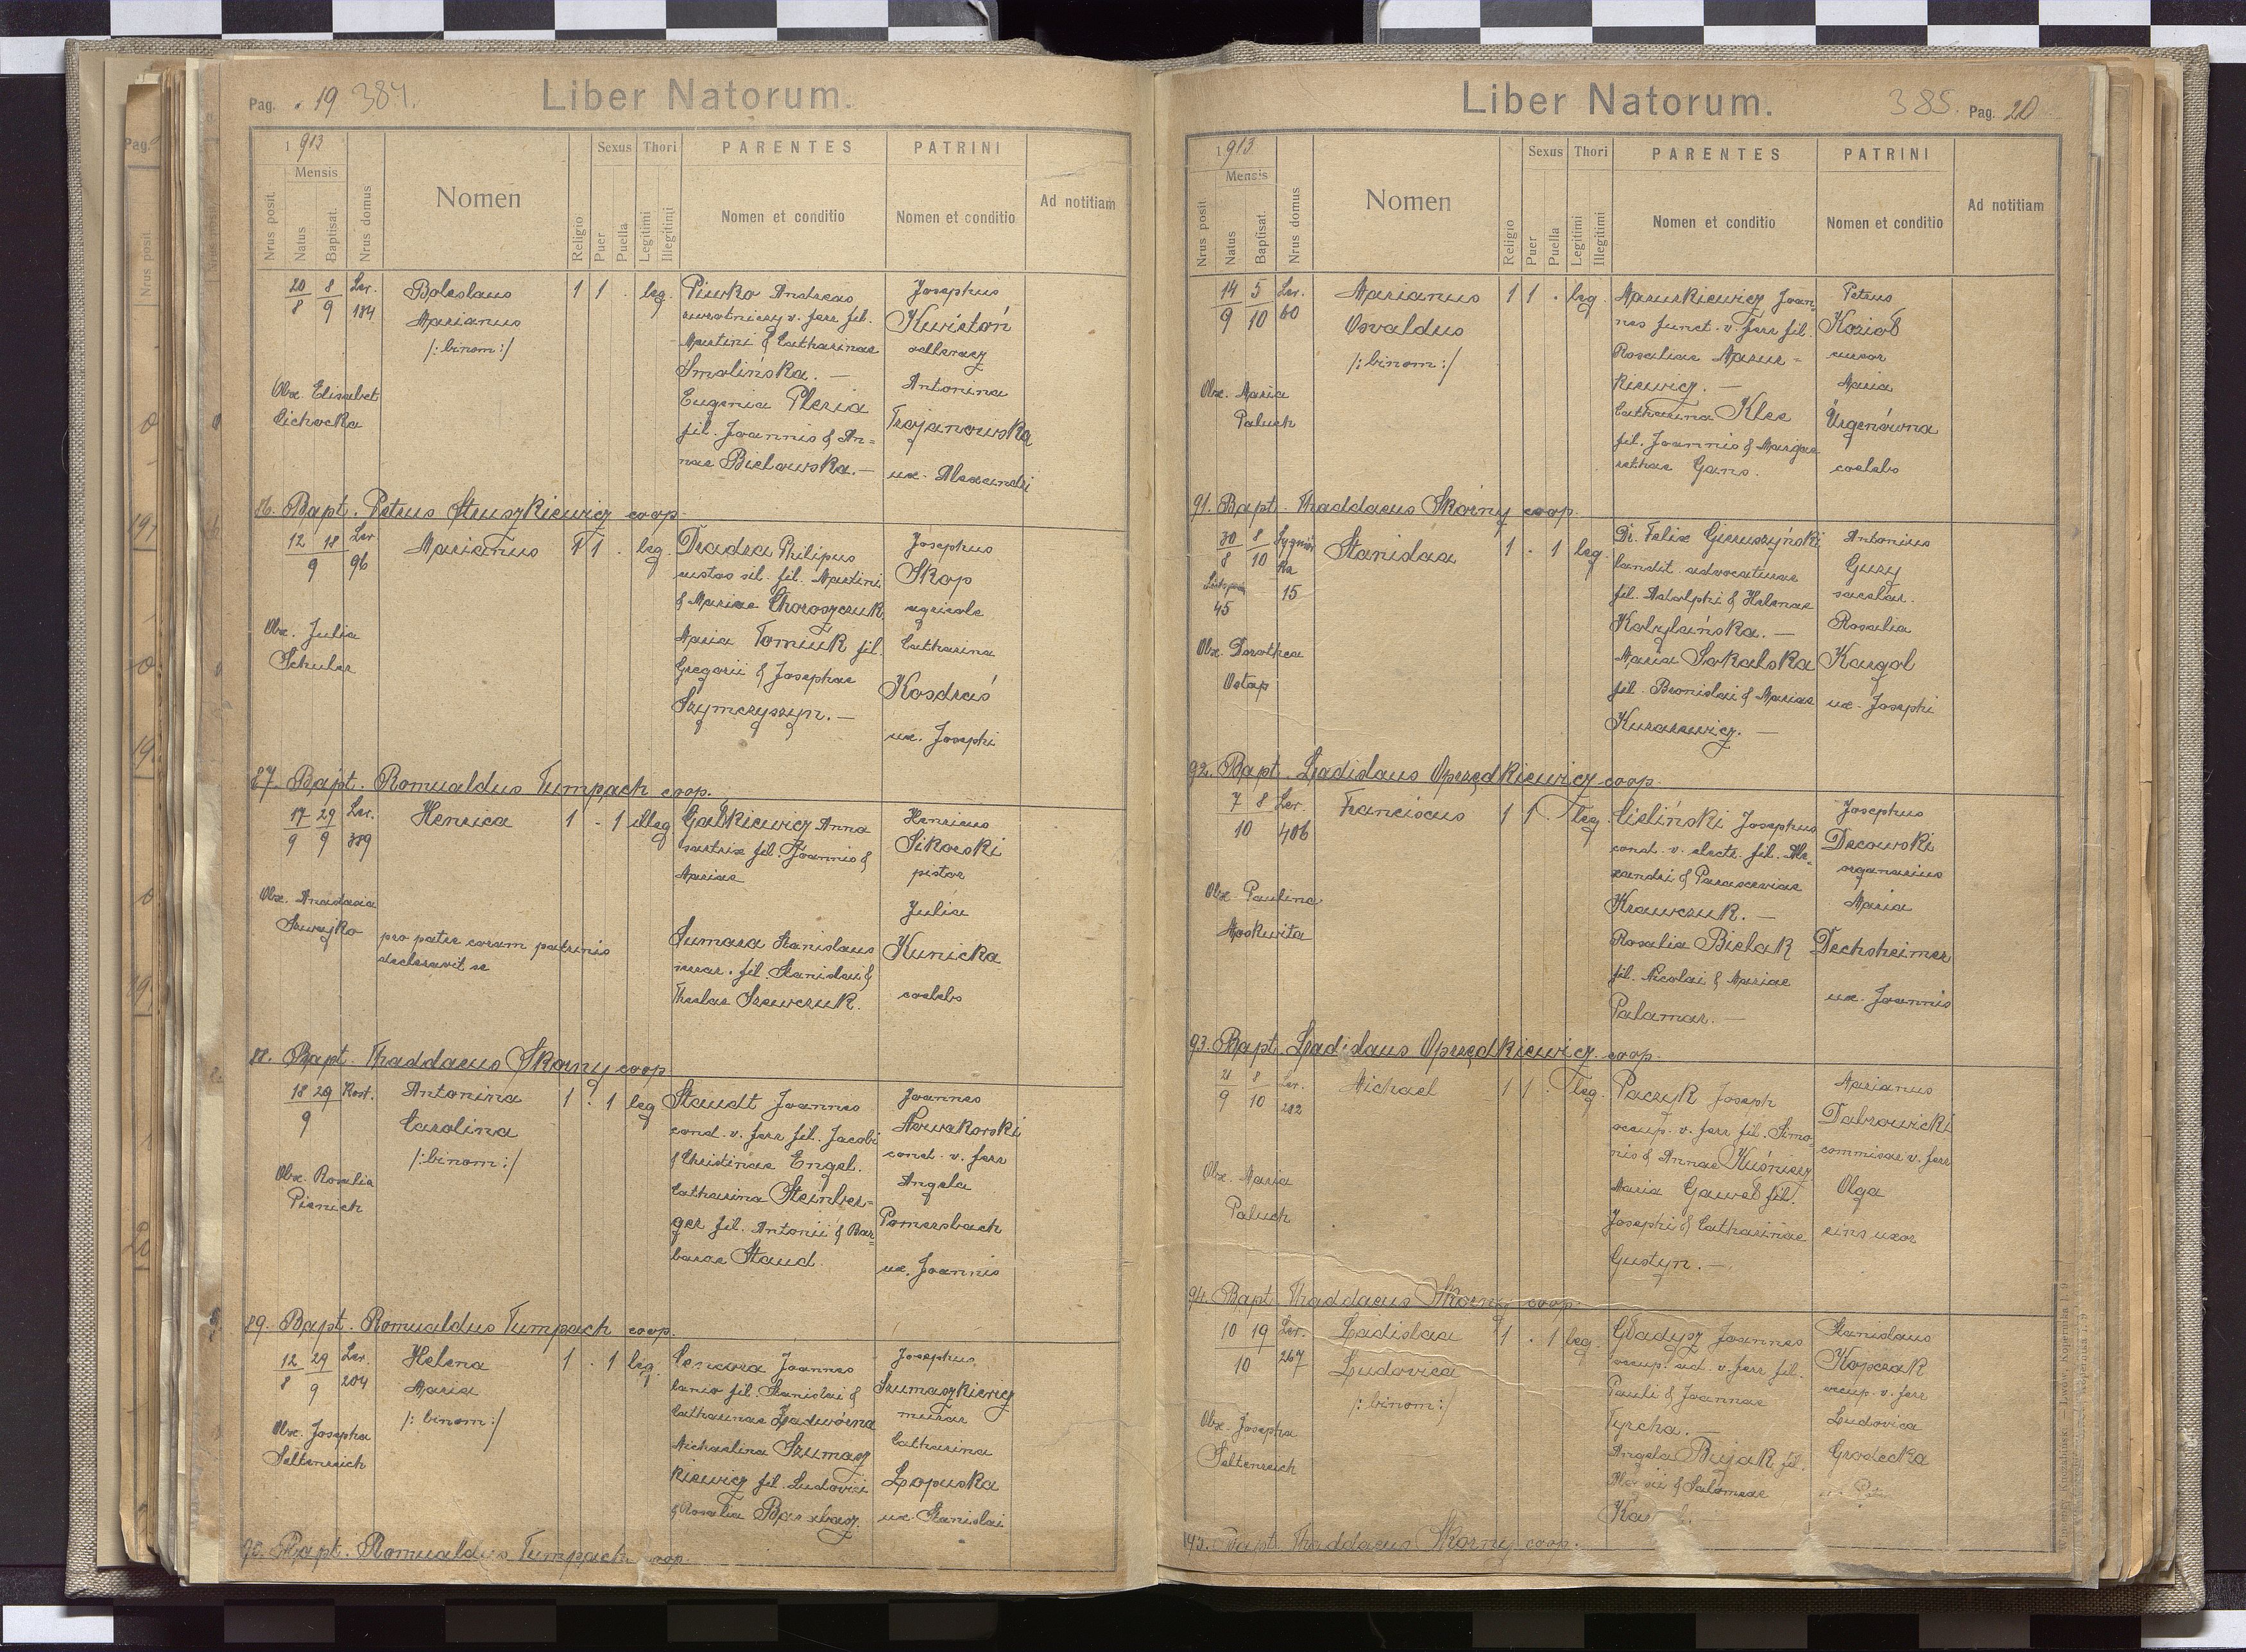 Pag. 19 384.
Liber Natorum.
1913
Mensis
Nrus posit.
Natus
Baptisat.
Nrus domus
Nomen
Religio
Sexus
Puer
Puella
Thori
Legitimi
Illegitimi
PARENTES
Nomen et conditio
PATRINI
Nomen et conditio
Ad notitiam
20/8 8/9 Ler. 184
Boleslaus
Marianus
/:binom:/
1 1 . leg.
Obx. Elisabet
Cichocka
Piurko Andreas
zwrotniczy v. ferr. fil.
Martini & Catharinae
Smolińska. —
Eugenia Pleria
fil. Joannis & An=
nae Bielowska. —
Josephus
Kwistoń
Antonina
Trojanowska
ux. Alexandri
86. Bapt. Petrus Struszkiewicz coop.
12 18 Ler. 96
9
Marianus
1 1 . leg.
Obx. Julia
Schuler
Dradra Philipus
custos sil. fil. Martini
& Mariae Choroszczuk
Maria Tomiuk fil.
Gregorii & Josephae
Szymczyszyn. —
Josephus
Skop
agricola
Catharina
Kosdraś
ux. Josephi
87. Bapt. Romualdus Tumpach coop.
17/9 29/9 Ler. 389
Henrica
1 . 1 illeg.
Obx. Anastasia
Szwajko
pro patre coram patrinis
declaravit se
Gałkiewicz Anna
sartrix fil. Joannis &
Mariae
Sumara Stanislaus
murar. fil. Stanislai &
Theclae Szewczuk.
Henricus
Sikorski
pistor
Julia
Kunicka
coelebs
88. Bapt. Thaddaeus Skorny coop.
18 29 Rost.
9
Antonina
Carolina
/:binom:/
1 . 1 leg
Obx. Rosalia
Pisnich
Staudt Joannes
cond. v. ferr fil. Jacobi
& Christinae Engel.
Catharina Steinber=
ger fil. Antonii & Bar=
barae Staud.
Joannes
Nowakowski
cond. v. ferr
Angela
Pomersbach
ux. Joannis
89. Bapt. Romualdus Tumpach coop.
12/8 29/9 Ler. 204
Helena
Maria
/:binom:/
1 . 1 leg.
Obx. Josepha
Seltenreich
Cencora Joannes
lanio fil. Stanislai &
Catharinae Zadwórna
Michaelina Szumasz
kiewicz fil. Ludovici
& Rosalia
Josephus
Szumaszkiewicz
murar
Catharina
Lopuska
ux. Stanislai
90. Bapt. Romualdus Tumpach coop.
Liber Natorum.
385. Pag. 20
1913
Mensis
Nrus posit.
Natus
Baptisat.
Nrus domus
Nomen
Religio
Sexus
Puer
Puella
Thori
Legitimi
Illegitimi
PARENTES
Nomen et conditio
PATRINI
Nomen et conditio
Ad notitiam
14/9 5/10 Ler. 60
Marianus
Osvaldus
/:binom:/
1 1 . leg.
Obx. Maria
Paluch
Mazurkiewicz Joan=
nes funct. v. ferr fil.
Rosaliae Mazur=
kiewicz. —
Catharina Klee
fil. Joannis & Marga
rethae Gans.
Petrus
Kozioł
cursor
Maria
Ürgenówna
coelebs
91. Bapt. Thaddaeus Skorny coop.
30/8 8/10
15
45
Stanislaa
1 . 1 leg.
Obx. Dorothea
Ostap
Dr. Felix Gieruszyński
Candit advocaturae
fil. Adolphi & Helenae
Kobylańska. —
Maria Sokalska
fil. Bronislai & Mariae
Kurasiewicz. —
Antonius
Gury
Rosalia
Kargol
ux. Josephi
92. Bapt. Ladislaus Oprzędkiewicz coop.
7 8 Ler. 406
10
Franciscus
1 1 . leg.
Obx. Paulina
Moskwita
Cieliński Josephus
cond. v. electr. fil. Ale=
xandri & Parasceviae
Krawczuk. —
Rosalia Bielak
fil. Nicolai & Mariae
Palamar. —
Josephus
Decowski
organarius
Maria
Dechsheimer
ux. Joannis
93. Bapt. Ladislaus Oprzędkiewicz coop.
21/9 8/10 Ler. 282
Michael
1 1 . leg.
Obx. Maria
Paluch
Paczyk Joseph
occup. v. ferr fil. Simo=
nis & Annae Kuśnierz
Maria Gaweł fil.
Josephi & Catharinae
Gustyn. —
Marianus
Dabrowicki
commisar v. ferr
Olga
eius uxor
94. Bapt. Thaddaeus Skorny coop.
10 19 Ler. 267
10
Ladislaa
Ludovica
/:binom:/
1 . 1 leg.
Obx. Josepha
Seltenreich
Gładysz Joannes
occup. ad. v. ferr fil.
Pauli & Joannae
Tyrcha. —
Angela Bujak fil.
& Salomeae
Stanislaus
Kopczak
occup. v. ferr
Ludovica
Grodecka
95. Bapt. Thaddaeus Skorny coop.